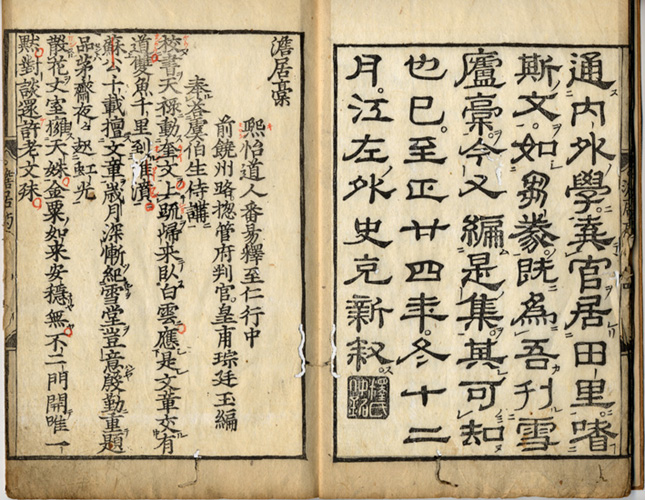 通内外學棄官居田里嗜
斯文如芻豢既為吾刊雪
廬藁今又編是集其可知
也已至正廿四年冬十二
月江左外史克新叙
澹居藁
熙怡道人番昜釋至仁行中
前饒州路揔管府判官皇甫琮廷玉編
奉荅虞伯生侍講
校書天禄動奎文上疏歸来臥白雲應是文章交有
道雙魚千里到淮濆
蘇公十載擅文章歲月深漸紀雪堂豈意慇勤重題
品茅齋夜々起虹光
散花丈室天姝金粟如来安穏無不二門開唯一
黙對談還許老文殊